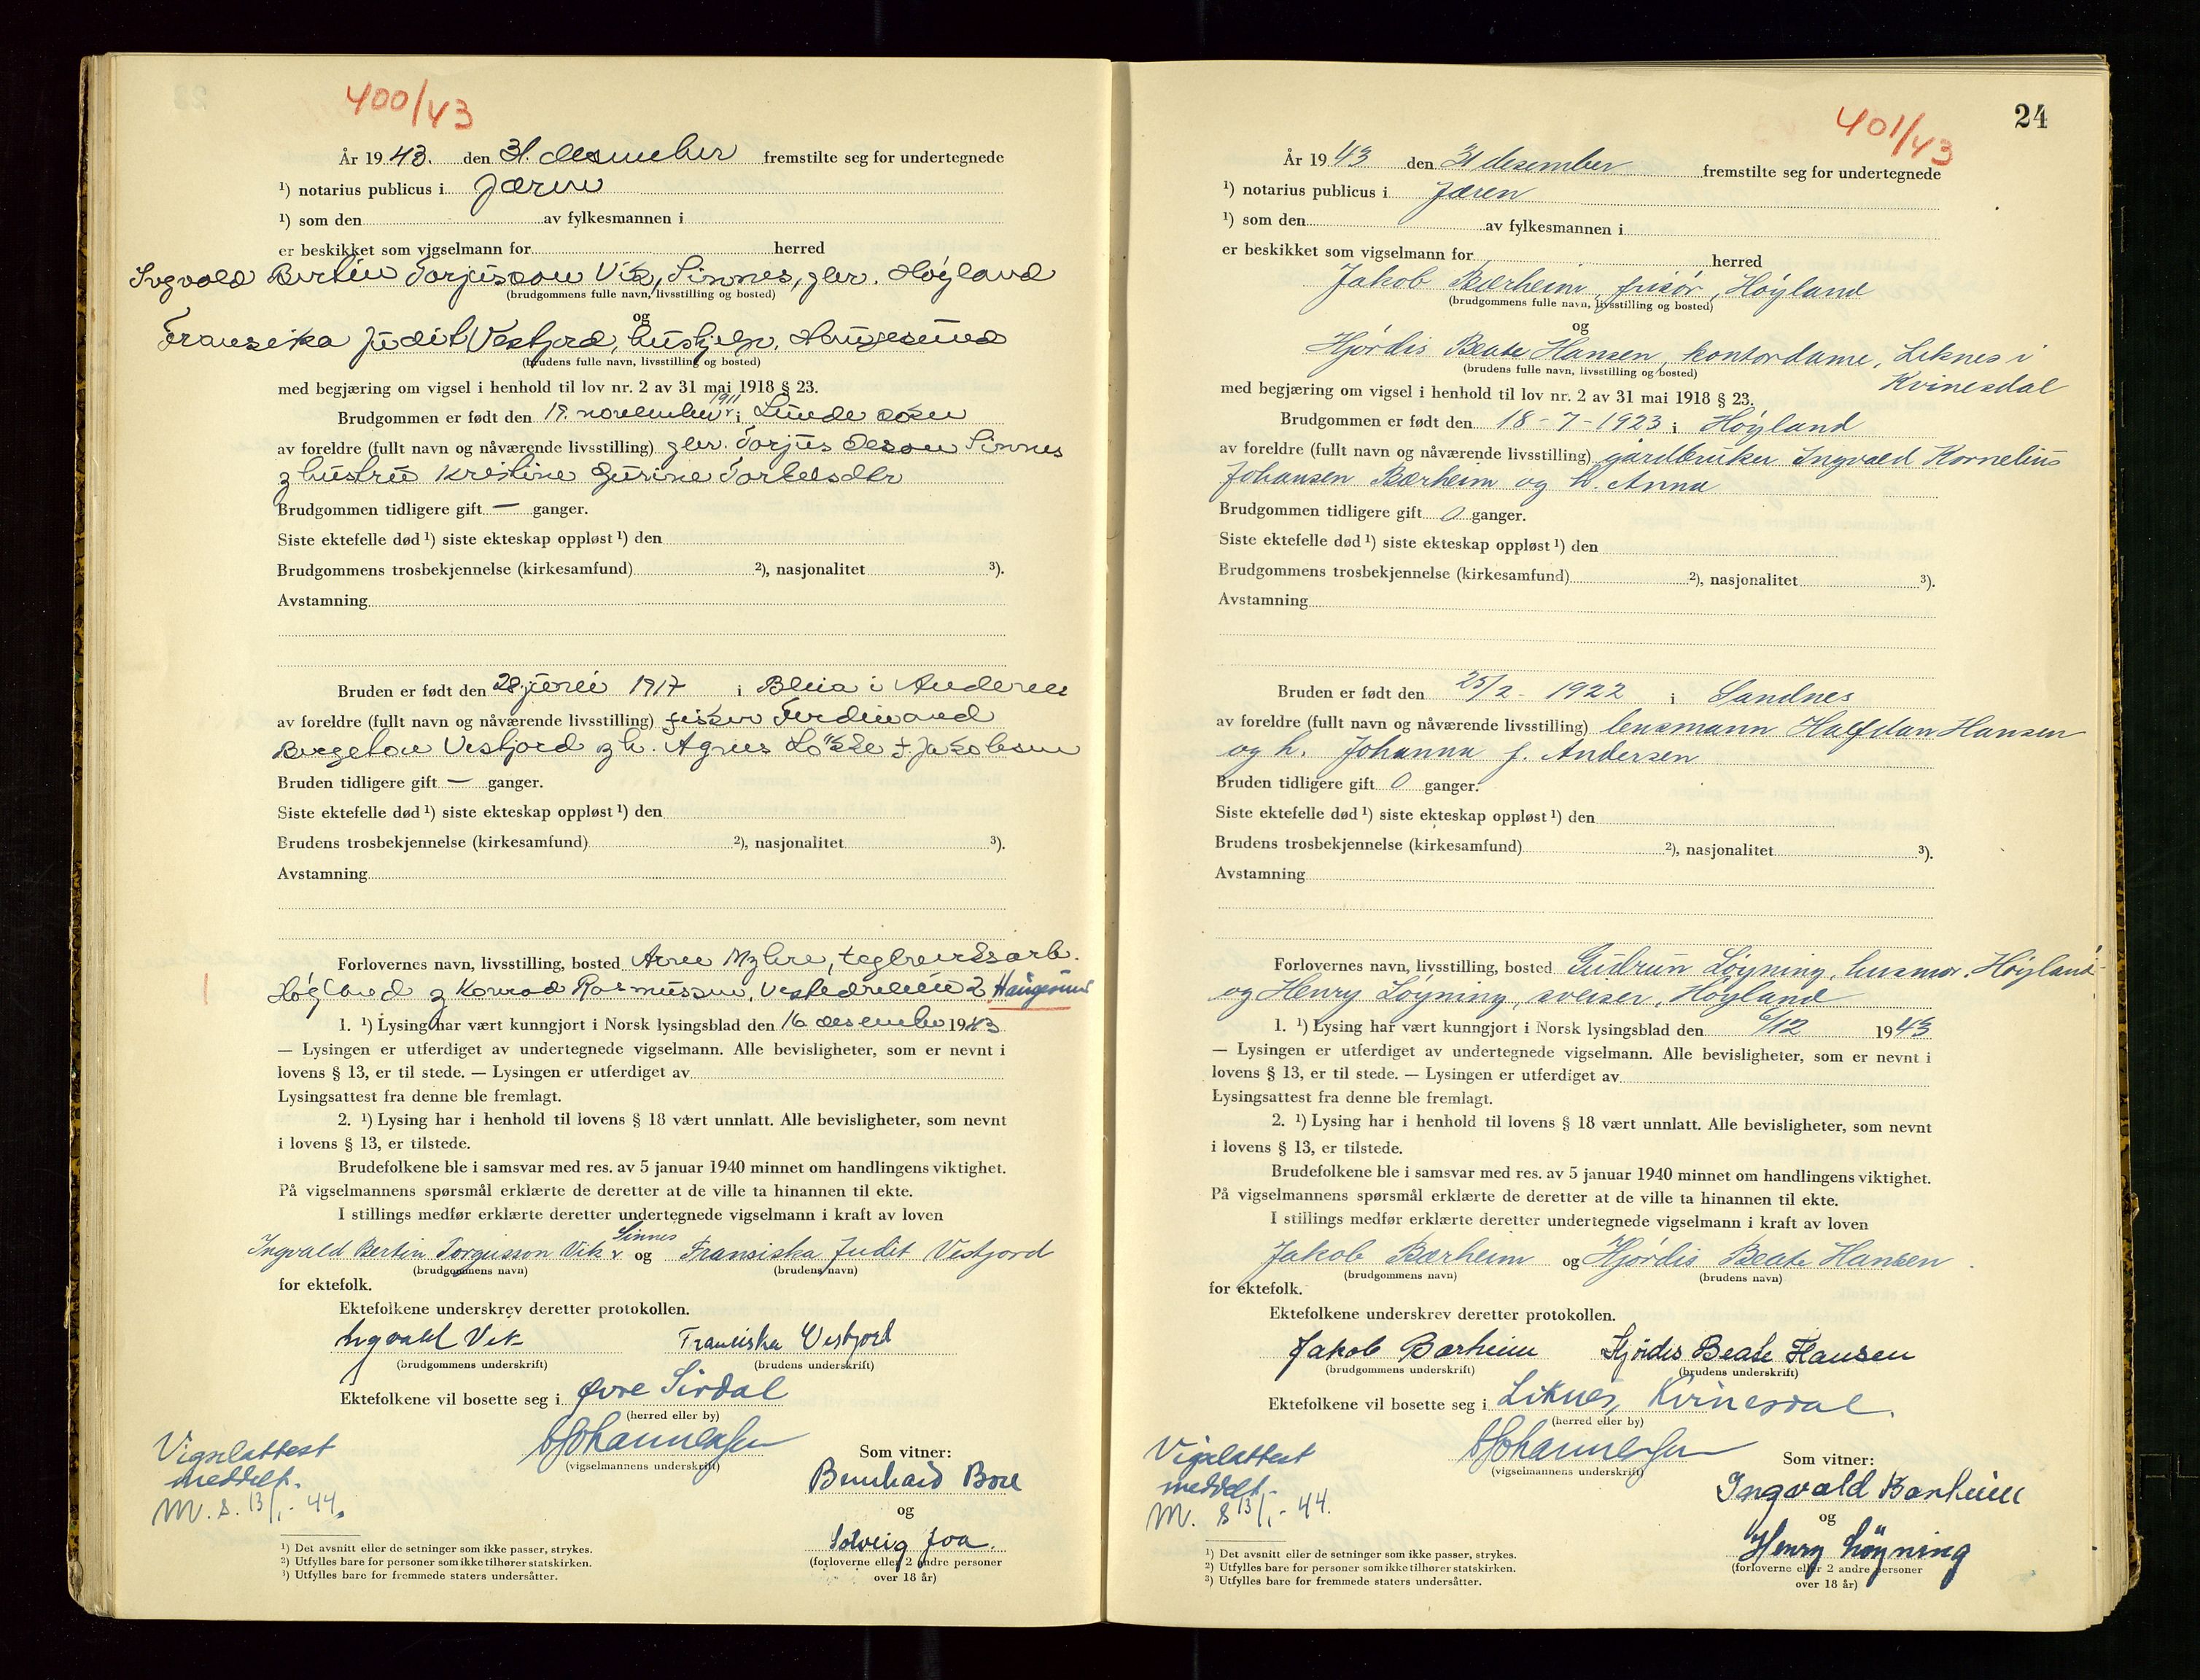 400/43
År 19 43. den 31. desember fremstilte seg for undertegnede
¹) notarius publicus i Jæren
¹) som den av fylkesmannen i
er beskikket som vigselmann for herred
Ingvald Bertin Torjusson Vik, Sinnes, gbr. Høyland
(brudgommens fulle navn, livsstilling og bosted)
og
Fransiska Judit Vestjord, hushjelp, Haugesund
(brudens fulle navn, livsstilling og bosted)
med begjæring om vigsel i henhold til lov nr. 2 av 31 mai 1918 § 23.
1911
Brudgommen er født den 19. november i Lunde sokn
av foreldre (fullt navn og nåværende livsstilling) gbr. Torjus Oleson Sinnes
og hustru Kristine Gurine Torkelsdtr
Brudgommen tidligere gift — ganger.
Siste ektefelle død ¹) siste ekteskap oppløst ¹) den
Brudgommens trosbekjennelse (kirkesamfund) ²), nasjonalitet ³).
Avstamning
Bruden er født den 28. juni 1917 i Bleia i Andenes
av foreldre (fullt navn og nåværende livsstilling) fisker Ferdinand
Bergeton Vestjord og h. Agnes Løkke f. Jakobsen
Bruden tidligere gift — ganger.
Siste ektefelle død ¹) siste ekteskap oppløst ¹) den
Brudens trosbekjennelse (kirkesamfund) ²), nasjonalitet ³).
Avstamning
Forlovernes navn, livsstilling, bosted Arne Myhre, teglverksarb.
Høyland og Konrad Rasmussen, Haugesund
1. ¹) Lysing har vært kunngjort i Norsk lysingsblad den 16 desember 1943
— Lysingen er utferdiget av undertegnede vigselmann. Alle bevisligheter, som er nevnt i
lovens § 13, er til stede. — Lysingen er utferdiget av
Lysingsattest fra denne ble fremlagt.
2. ¹) Lysing har i henhold til lovens § 18 vært unnlatt. Alle bevisligheter, som nevnt
i lovens § 13, er tilstede.
Brudefolkene ble i samsvar med res. av 5 januar 1940 minnet om handlingens viktighet.
På vigselmannens spørsmål erklærte de deretter at de ville ta hinannen til ekte.
I stillings medfør erklærte deretter undertegnede vigselmann i kraft av loven
Sinnes
Ingvald Bertin Torgusson Vik v og Fransiska Judit Vestjord
(brudgommens navn) (brudens navn)
for ektefolk.
Ektefolkene underskrev deretter protokollen.
Ingvald Vik Franciska Vestjord
(brudgommens underskrift) (brudens underskrift)
Ektefolkene vil bosette seg i Øvre Sirdal
(herred eller by)
Johannessen
(vigselmannens underskrift)
Vigselattest
meddelt.
M. S. 13/1 - 44.
Som vitner:
Bernhard Bore
og
Solveig Joa.
(forloverne eller 2 andre personer
over 18 år)
¹) Det avsnitt eller de setninger som ikke passer, strykes.
²) Utfylles bare for personer som ikke tilhører statskirken.
³) Utfylles bare for fremmede staters undersåtter.
24
401/43
År 19 43 den 31 desember fremstilte seg for undertegnede
¹) notarius publicus i Jæren
¹) som den av fylkesmannen i
er beskikket som vigselmann for herred
Jakob Bærheim, frisør, Høyland
(brudgommens fulle navn, livsstilling og bosted)
og
Hjørdis Beate Hansen, kontordame, Liknes i
(brudens fulle navn, livsstilling og bosted)
Kvinesdal
med begjæring om vigsel i henhold til lov nr. 2 av 31 mai 1918 § 23.
Brudgommen er født den 18 - 7 - 1923 i Høyland
av foreldre (fullt navn og nåværende livsstilling) gårdbruker Ingvald Kornelius
Johansen Bærheim og h. Anna
Brudgommen tidligere gift 0 ganger.
Siste ektefelle død ¹) siste ekteskap oppløst ¹) den
Brudgommens trosbekjennelse (kirkesamfund) ²), nasjonalitet ³).
Avstamning
Bruden er født den 25/2 - 1922 i Sandnes
av foreldre (fullt navn og nåværende livsstilling) lensmann Halfdan Hansen
og h. Johanna f. Andersen
Bruden tidligere gift 0 ganger.
Siste ektefelle død ¹) siste ekteskap oppløst ¹) den
Brudens trosbekjennelse (kirkesamfund) ²), nasjonalitet ³).
Avstamning
Forlovernes navn, livsstilling, bosted Gudrun Løyning, husmor, Høyland
og Henry Løyning, sveiser, Høyland
1. ¹) Lysing har vært kunngjort i Norsk lysingsblad den 6/12 1943
— Lysingen er utferdiget av undertegnede vigselmann. Alle bevisligheter, som er nevnt i
lovens § 13, er til stede. — Lysingen er utferdiget av
Lysingsattest fra denne ble fremlagt.
2. ¹) Lysing har i henhold til lovens § 18 vært unnlatt. Alle bevisligheter, som nevnt
i lovens § 13, er tilstede.
Brudefolkene ble i samsvar med res. av 5 januar 1940 minnet om handlingens viktighet.
På vigselmannens spørsmål erklærte de deretter at de ville ta hinannen til ekte.
I stillings medfør erklærte deretter undertegnede vigselmann i kraft av loven
Jakob Bærheim og Hjørdis Beate Hansen
(brudgommens navn) (brudens navn)
for ektefolk.
Ektefolkene underskrev deretter protokollen.
Jakob Bærheim Hjördis Beate Hansen
(brudgommens underskrift) (brudens underskrift)
Ektefolkene vil bosette seg i Liknes, Kvinesdal.
(herred eller by)
Johannessen
(vigselmannens underskrift)
Vigselattest
meddelt.
M. S 13/1 - 44.
Som vitner:
Ingvald Bærheim
og
Henry Löyning
(forloverne eller 2 andre personer
over 18 år)
¹) Det avsnitt eller de setninger som ikke passer, strykes.
²) Utfylles bare for personer som ikke tilhører statskirken.
³) Utfylles bare for fremmede staters undersåtter.